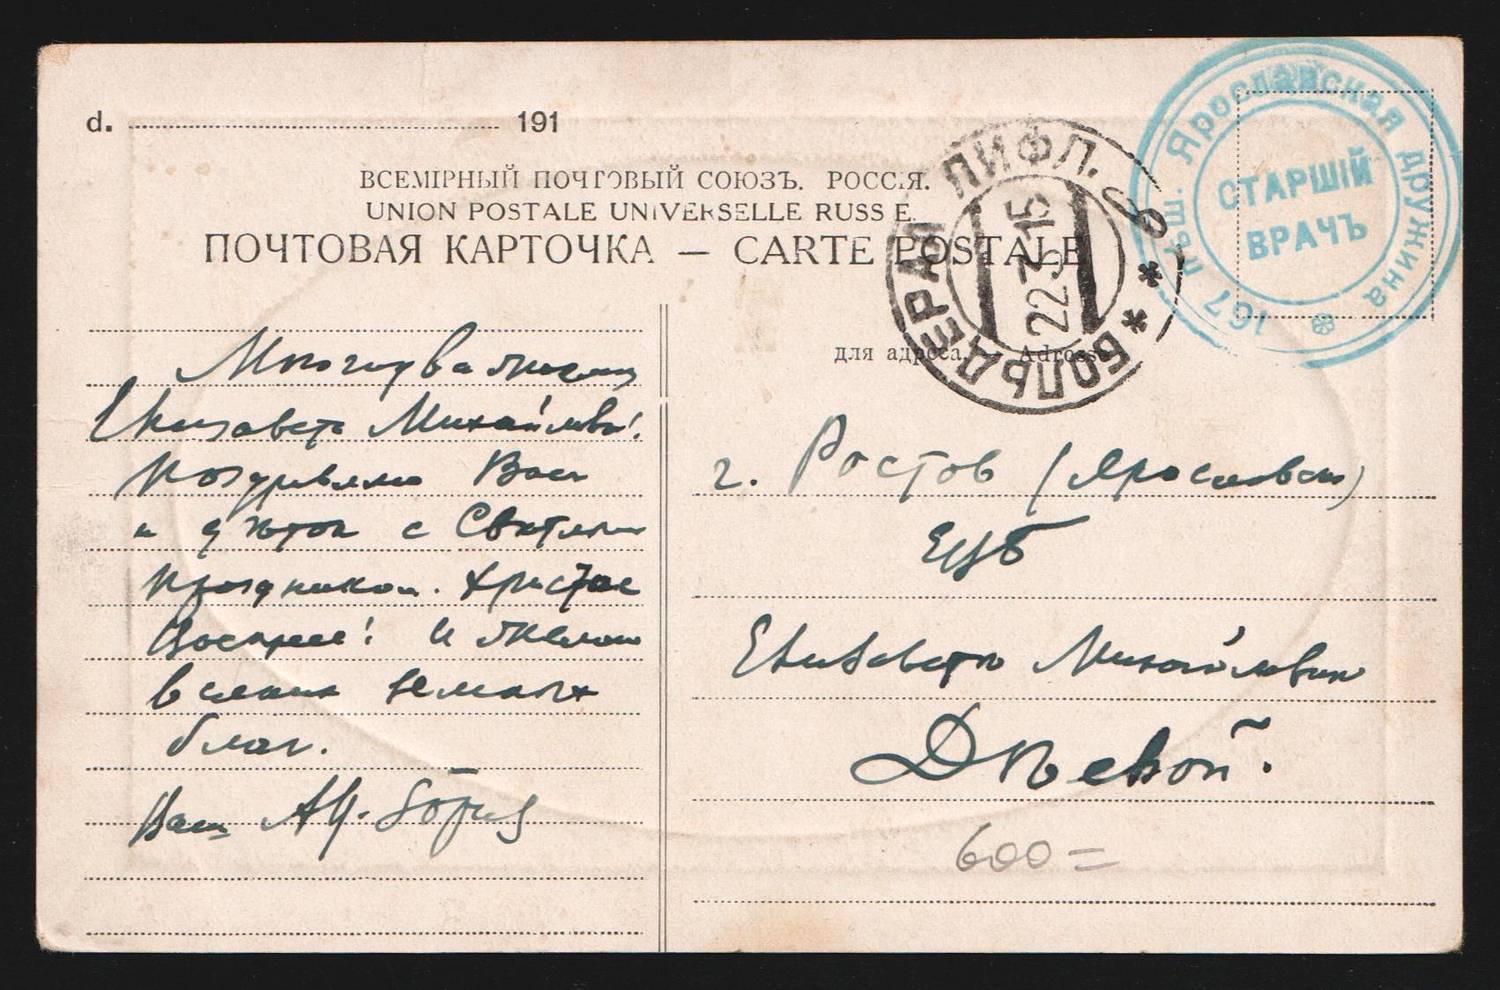 d. 191
ВСЕМІРНЫЙ ПОЧТОВЫЙ СОЮЗЪ. РОССІЯ.
UNION POSTALE UNIVERSELLE RUSSIE.
ПОЧТОВАЯ КАРТОЧКА — CARTE POSTALE
для адреса. — Adresse
БОЛЬДЕРАА ЛИФЛ. Г.
22.3.15
167 пѣш. Ярославская дружина
СТАРШІЙ
ВРАЧЪ
Многоуважаемая
Елизавета Михайловна!
Поздравляю Вас
и дѣток с Светлым
праздником. Христос
Воскресе! И желаю
всяких земных
благ.
Ваш
г. Ростов (Ярославск)
ЕЦБ
Елизавете Михайловне
Дѣевой.
600=